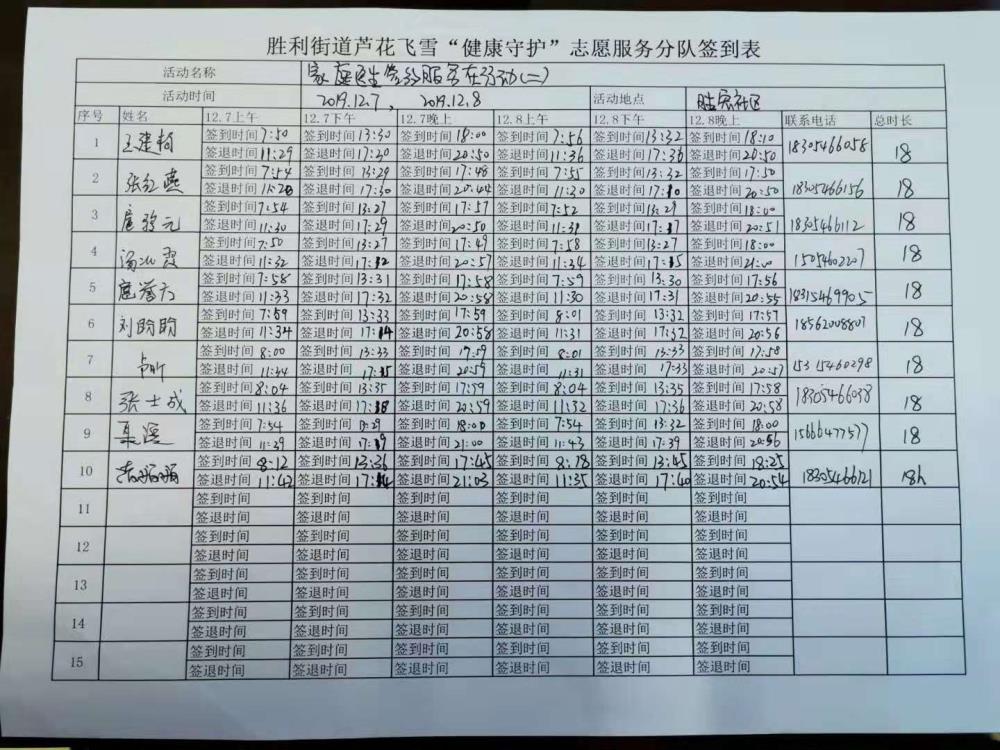 胜利街道芦花飞雪“健康守护”志愿服务分队签到表
活动名称 家庭医生签约服务在行动(二)
活动时间 2019.12.7 , 2019.12.8 活动地点 社区
序号 姓名 12.7上午 12.7下午 12.7晚上 12.8上午 12.8下午 12.8晚上 联系电话 总时长
1 王建 签到时间7:50 签到时间13:30 签到时间18:00 签到时间7:56 签到时间13:32 签到时间18:10 18305466058 18
签退时间11:29 签退时间17:20 签退时间20:50 签退时间11:36 签退时间17:36 签退时间20:50
2 张红燕 签到时间7:54 签到时间13:29 签到时间17:48 签到时间7:55 签到时间13:32 签到时间17:50 18305466156 18
签退时间11:20 签退时间17:30 签退时间20:44 签退时间11:30 签退时间17:10 签退时间20:50
3 元 签到时间7:54 签到时间13:27 签到时间17:57 签到时间7:52 签到时间13:29 签到时间18:00 18305466112 18
签退时间11:30 签退时间17:29 签退时间20:50 签退时间11:31 签退时间17:17 签退时间20:51
4 签到时间7:50 签到时间13:27 签到时间17:49 签到时间7:58 签到时间13:27 签到时间18:00 15054602207 18
签退时间11:32 签退时间17:12 签退时间20:57 签退时间11:34 签退时间17:15 签退时间21:00
5 签到时间7:58 签到时间13:31 签到时间17:58 签到时间7:59 签到时间13:30 签到时间17:56 18315469905 18
签退时间11:33 签退时间17:32 签退时间20:58 签退时间11:30 签退时间17:31 签退时间20:55
6 刘盼盼 签到时间7:59 签到时间13:33 签到时间17:59 签到时间8:01 签到时间13:32 签到时间17:57 18562008807 18
签退时间11:34 签退时间17:14 签退时间20:58 签退时间11:31 签退时间17:32 签退时间20:56
7 签到时间8:00 签到时间13:33 签到时间17:59 签到时间8:01 签到时间13:33 签到时间17:58 15315460298 18
签退时间11:44 签退时间17:15 签退时间20:59 签退时间11:31 签退时间17:33 签退时间20:57
8 张士成 签到时间8:04 签到时间13:35 签到时间17:59 签到时间8:04 签到时间13:35 签到时间17:58 18305466038 18
签退时间11:36 签退时间17:18 签退时间20:59 签退时间11:32 签退时间17:36 签退时间20:58
9 签到时间7:54 签到时间13:29 签到时间18:00 签到时间7:54 签到时间13:32 签到时间18:00 15666477577 18
签退时间11:29 签退时间17:19 签退时间21:00 签退时间11:43 签退时间17:39 签退时间20:56
10 签到时间8:12 签到时间13:36 签到时间17:45 签到时间8:18 签到时间13:45 签到时间18:25 18305466121 18h
签退时间11:42 签退时间17:14 签退时间21:03 签退时间11:35 签退时间17:40 签退时间20:54
11 签到时间 签到时间 签到时间 签到时间 签到时间 签到时间
签退时间 签退时间 签退时间 签退时间 签退时间 签退时间
12 签到时间 签到时间 签到时间 签到时间 签到时间 签到时间
签退时间 签退时间 签退时间 签退时间 签退时间 签退时间
13 签到时间 签到时间 签到时间 签到时间 签到时间 签到时间
签退时间 签退时间 签退时间 签退时间 签退时间 签退时间
14 签到时间 签到时间 签到时间 签到时间 签到时间 签到时间
签退时间 签退时间 签退时间 签退时间 签退时间 签退时间
15 签到时间 签到时间 签到时间 签到时间 签到时间 签到时间
签退时间 签退时间 签退时间 签退时间 签退时间 签退时间